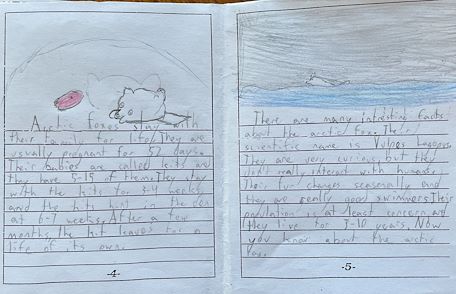 Arctic foxes stay with
their family for life. They are
usually pregnant for 52 days.
Their babies are called kits and
they have 5-15 of them. They stay
with the kits for 3-4 weeks
and the kits hunt in the den
at 6-7 weeks. After a few
months the kit leaves for a
life of its own.
-4-
There are many intresting facts
about the arctic fox. Their
scientific name is Vulpes lagopus.
They are very curious, but they
don't really interact with humans.
Their fur changes seasonally and
they are really good swimmers. Their
population is at least concern and
they live for 3-10 years. Now
you know about the arctic
fox.
-5-